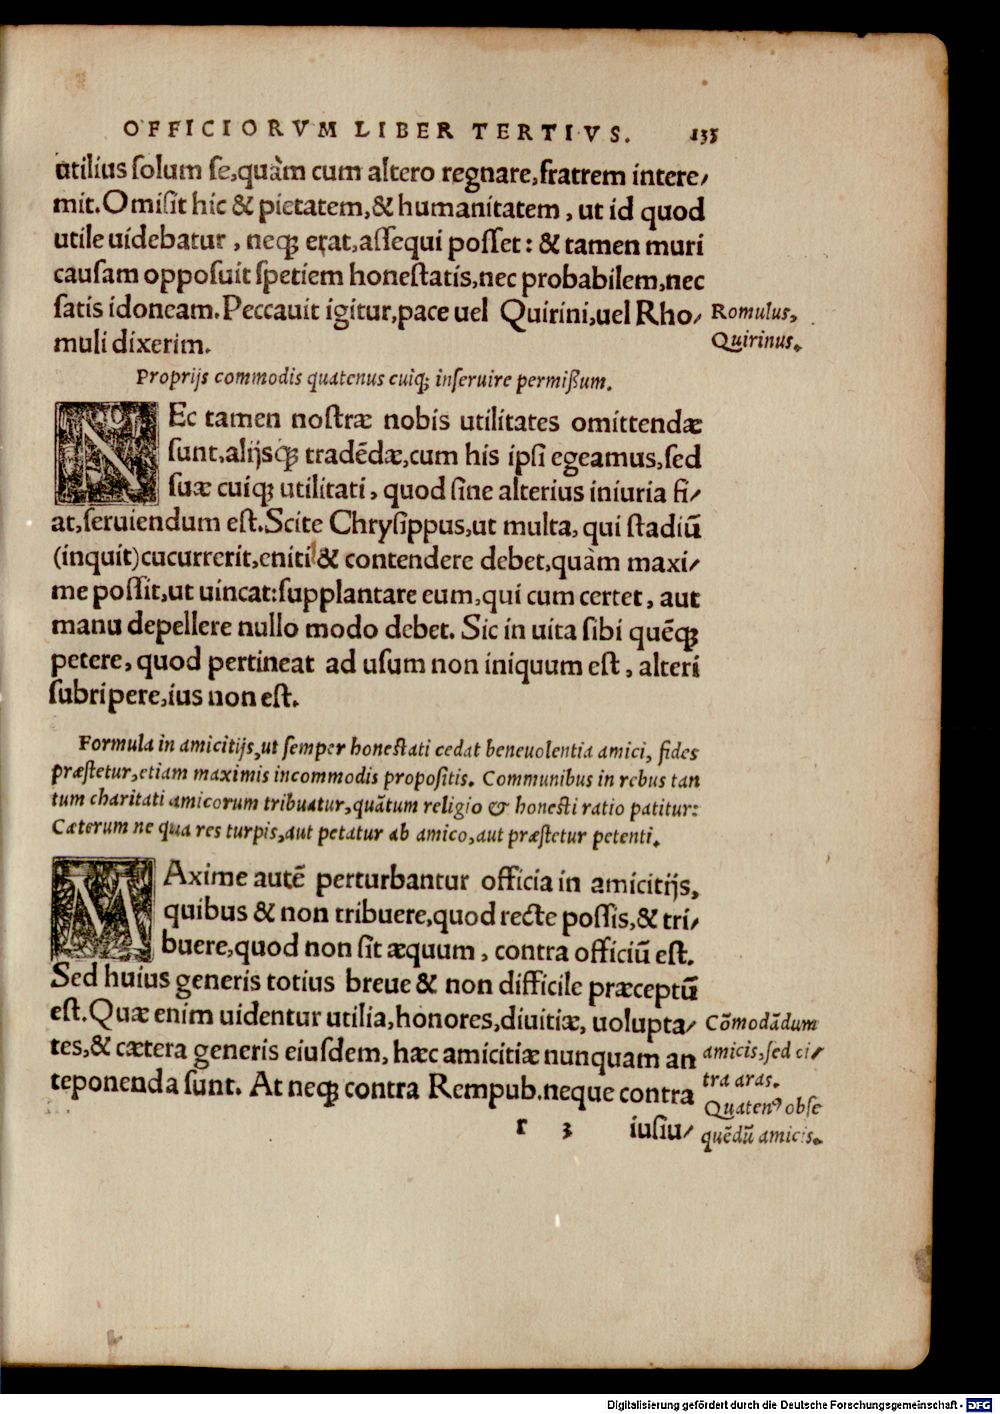 OFFICIORVM LIBER TERTIVS. 135
utilius ſolum ſe,quàm cum altero regnare,fratrem intere/
mit.Omiſit hic & pietatem,& humanitatem , ut id quod
utile uidebatur , neqꝫ erat,aſſequi poſſet : & tamen muri
cauſam oppoſuit ſpetiem honeſtatis,nec probabilem,nec
ſatis idoneam.Peccauit igitur,pace uel Quirini,uel Rho/
muli dixerim.
Romulus,
Quirinus.
Proprijs commodis quatenus cuiqꝫ inſeruire permiſſum.
NEc tamen noſtræ nobis utilitates omittendæ
ſunt,alijsqꝫ tradēdæ,cum his ipſi egeamus,ſed
ſuæ cuiqꝫ utilitati , quod ſine alterius iniuria fi/
at,ſeruiendum eſt.Scite Chryſippus,ut multa, qui ſtadiū
(inquit)cucurrerit,eniti & contendere debet,quàm maxi/
me poſſit,ut uincat:ſupplantare eum,qui cum certet , aut
manu depellere nullo modo debet. Sic in uita ſibi quēqꝫ
petere, quod pertineat ad uſum non iniquum eſt , alteri
ſubripere,ius non eſt.
Formula in amicitijs,ut ſemper honeſtati cedat beneuolentia amici, fides
præſtetur,etiam maximis incommodis propoſitis. Communibus in rebus tan
tum charitati amicorum tribuatur,quātum religio & honeſti ratio patitur:
Cæterum ne qua res turpis,aut petatur ab amico,aut præſtetur petenti.
MAxime autē perturbantur officia in amicitijs,
quibus & non tribuere,quod recte poſſis,& tri/
buere,quod non ſit æquum , contra officiū eſt.
Sed huius generis totius breue & non difficile præceptū
eſt.Quæ enim uidentur utilia,honores,diuitiæ, uolupta/
tes,& cætera generis eiuſdem, hæc amicitiæ nunquam an
teponenda ſunt. At neqꝫ contra Rempub.neque contra
Cōmodādum
amicis,ſed ci/
tra aras.
Quatenꝰ obſe
quēdū amicis.
r 3 iuſiu/
Digitalisierung gefördert durch die Deutsche Forschungsgemeinschaft - DFG